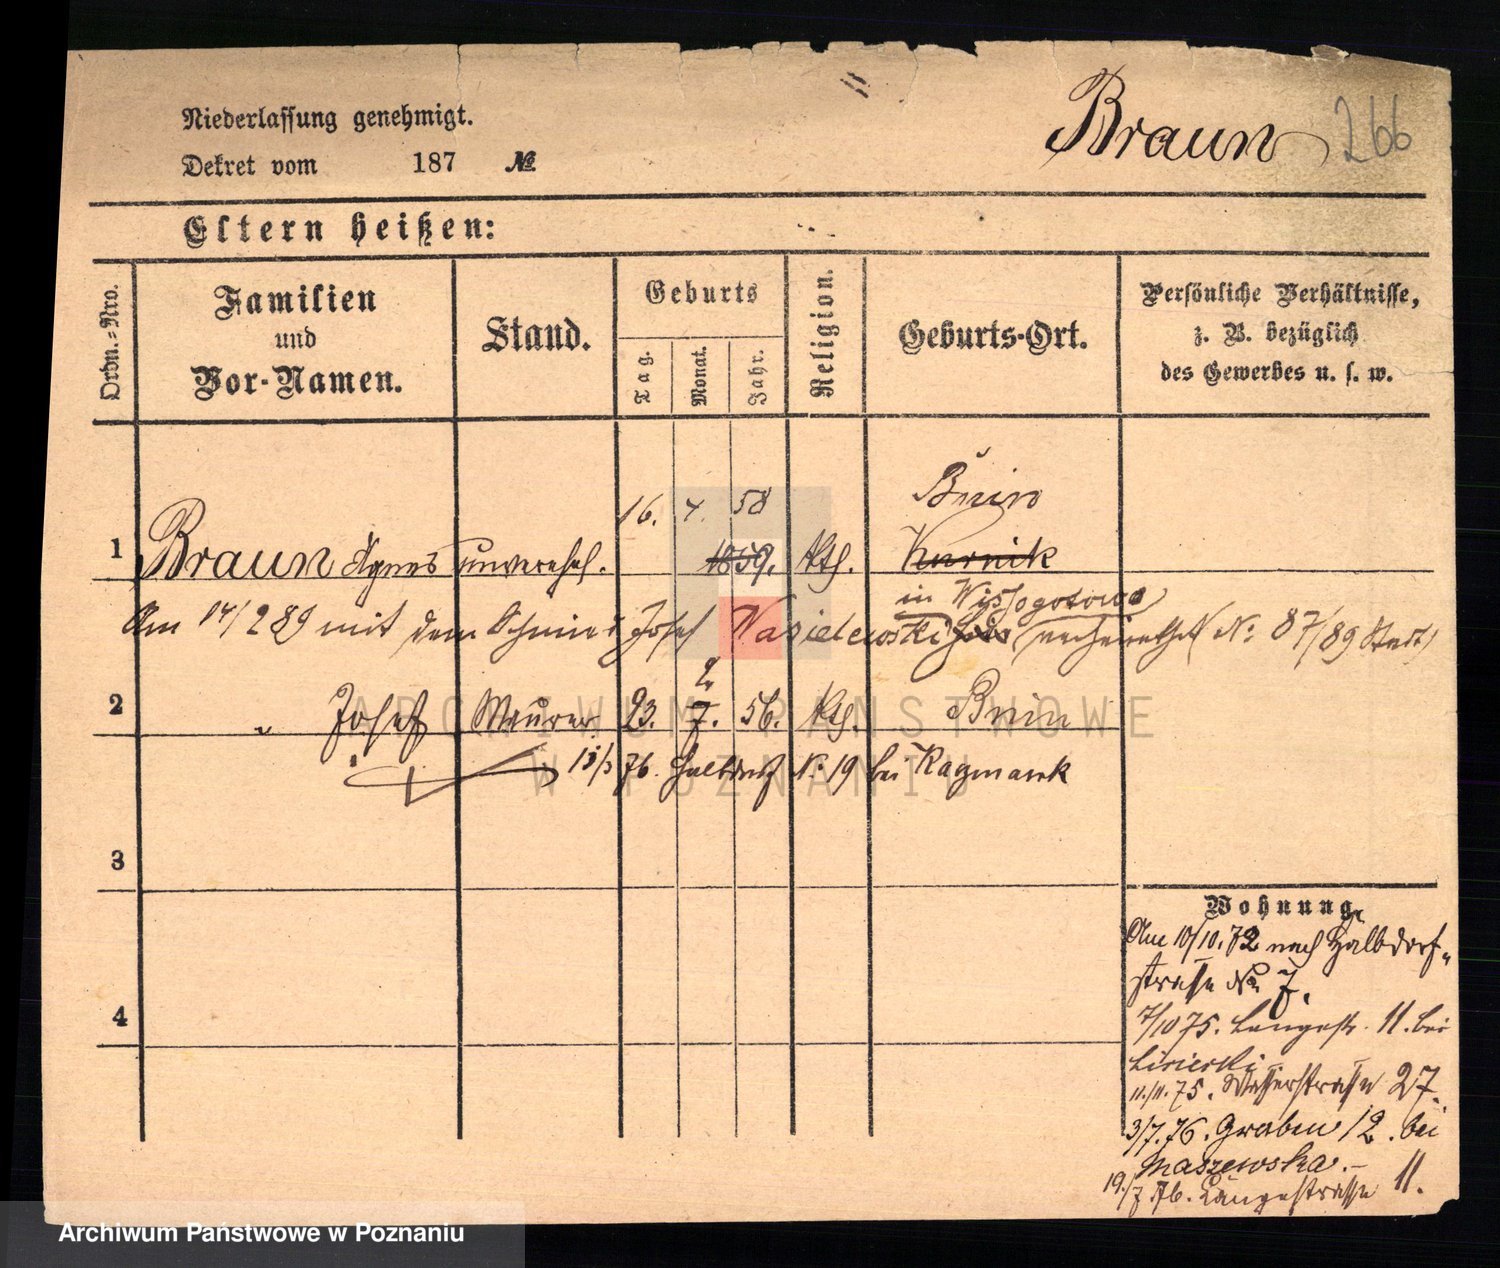 Niederlassung genehmigt.
Dekret vom 187 №
Braun 266
Eltern heißen:
Ordn.-Nro.
Familien
und
Vor-Namen.
Stand.
Geburts
Tag.
Monat.
Jahr.
Religion.
Geburts-Ort.
Persönliche Verhältnisse,
z. B. bezüglich
des Gewerbes u. s. w.
Bnin
16. 4. 58
1 Braun Agnes unverehel. 1859. kth. Kurnik
in Wissogotowo
Am 14/2 89 mit dem Schmied Josef Wasielewski verheirathet (No 87/89 Stadt)
2
2 " Josef Maurer 23. 7. 56. kth. Bnin
15/3 76. Halbdorf No 19 bei Kaczmarek
3
4
Wohnung.
Am 10/10. 72 nach Halbdorf-
strasse No 7.
7/10 75. Langestr. 11. bei
11./11. 75. Wasserstrasse 27.
3/7. 76. Graben 12. bei
Maszewska.-
19./7 76. Langestrasse 11.
ARCHIWUM PAŃSTWOWE
W POZNANIU
Archiwum Państwowe w Poznaniu